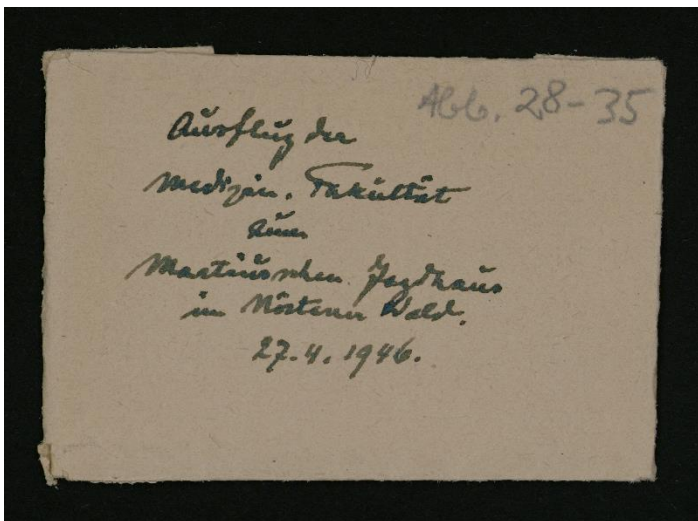 Abb. 28-35
Ausflug der
Medizin. Fakultät
zum
Martius'schen Jagdhaus
im Nörtener Wald.
27.4.1946.